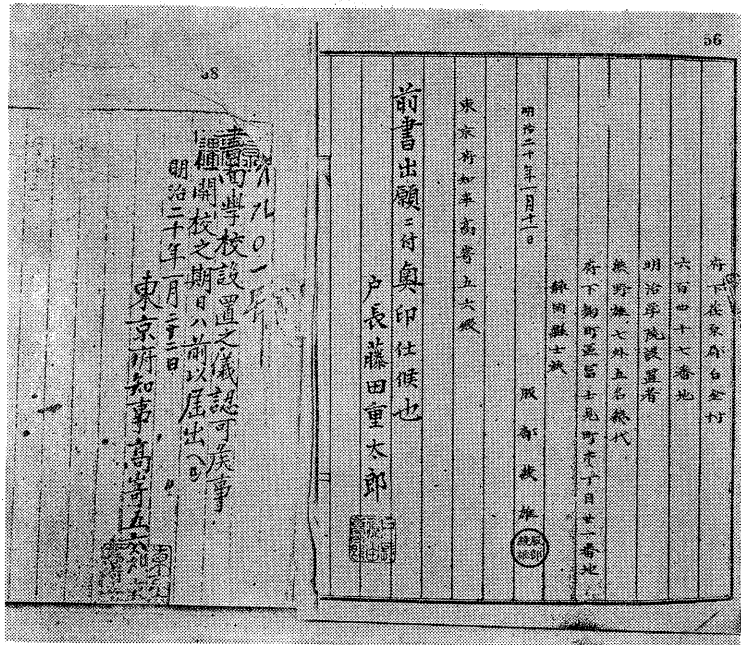 56
府下荏原郡白金村
六百四十七番地
明治学院設置者
熊野雄七外五名総代
府下麹町区富士見町
静岡縣士族
服部綾雄
明治二十年一月十二日
東京府知事高崎五六殿
前書出願ニ付奥印仕候也
戸長藤田重太郎
58
第九〇一号
書面學校設置之儀認可候事
但開校之期日ハ前以届出ヘシ
明治二十年一月二十二日
東京府知事高崎五六